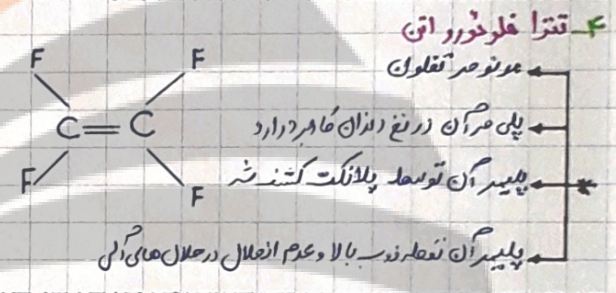 ۴- تترا فلوئورو اتن
مونومر تفلون
پلی مر آن در نخ دندان کاربرد دارد
پلیمر آن توسط پلانکت کشف شد
پلیمر آن نقطه ذوب بالا و عدم انحلال در حلال های آلی
F F
C = C
F F